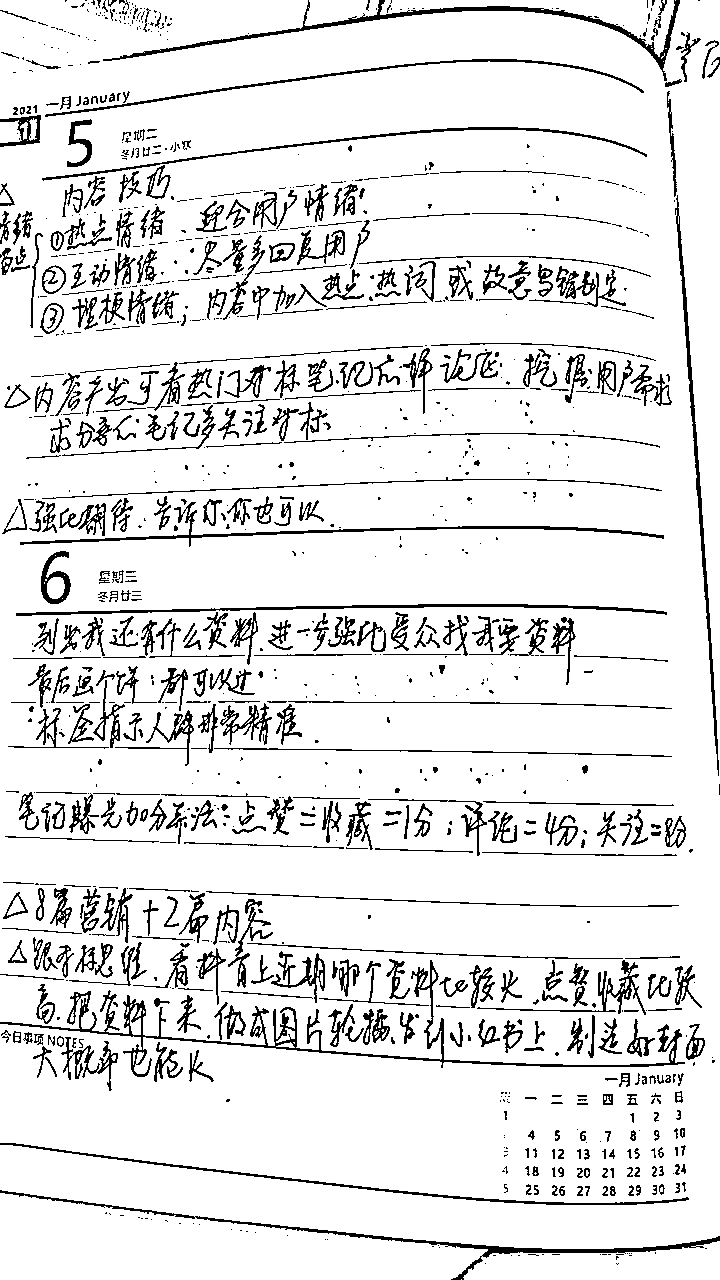 2021 一月 January
5 星期二
冬月廿二·小寒
△ 内容技巧
情绪 ①热点情绪、迎合用户情绪!
②互动情绪:尽量多回复用户
③埋梗情绪;内容中加入热点热词 或故意写错别字
△内容产出可看热门对标笔记底评论区、挖掘用户需求
求分享的笔记多关注对标
△强化期待、告诉你,你也可以
6 星期三
冬月廿三
列出我还有什么资料,进一步强化受众找我要资料
最后画个饼:都可以过
标签指示人群非常精准
笔记曝光加分算法:点赞=收藏=1分;评论=4分;关注=8分.
△8篇营销+2篇内容
△跟对标思维、看抖音上近期哪个资料比较火,点赞收藏比较
高.把资料下来,做成图片轮播,发到小红书上、制造好封面
今日事项 NOTES
大概率也能火
一月 January
周 一 二 三 四 五 六 日
1 1 2 3
4 5 6 7 8 9 10
3 11 12 13 14 15 16 17
4 18 19 20 21 22 23 24
5 25 26 27 28 29 30 31